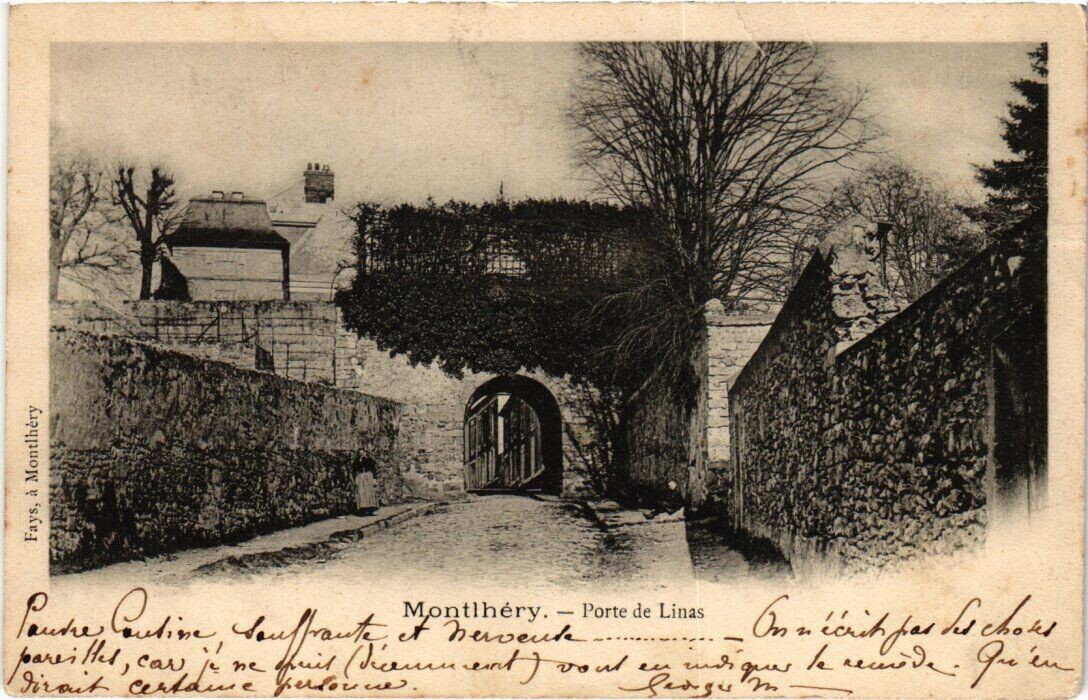 Fays, à Montlhéry
Montlhéry. — Porte de Linas
Pauvre Cousine Souffrante et Nerveuse ............ — On n'écrit pas des choses
pareilles, car je ne puis (décemment) vous en indiquer le remède. Qu'en
dirait certaine personne. Georges M